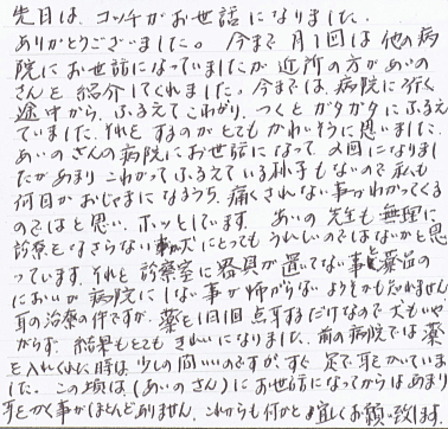 先日は、コッチがお世話になりました。
ありがとうございました。今まで月1回は他の病
院にお世話になっていましたが近所の方があいの
さんと紹介してくれました。今までは、病院に行く
途中から、ふるえてこわがり、つくとガタガタにふるえ
ていました。それをするのがとてもかわいそうに思いました。
あいのさんの病院にお世話になって2回になりまし
たがあまりこわがってふるえている様子もないので私も
何回かおじゃまになるうち、痛くされない事がわかってくる
のではと思い、ホッとしています。あいの先生も無理に
診察をなさらない事が犬にとってもうれしいのではないかと思
っています。それと診察室に器具が置いてない事と薬品の
においが病院にしない事が怖がらないようそかも知れません
耳の治療の件ですが、薬を1日1回点耳するだけなので犬もいや
がらず、結果もとてもきれいになりました。前の病院では薬
を入れてくれた時は少しの間いいのですが、すぐ足で耳をかいていま
した。この頃は、(あいのさん)にお世話になってからはあまり
耳をかく事がほとんどありません。これからも何かと宜しくお願い致します。